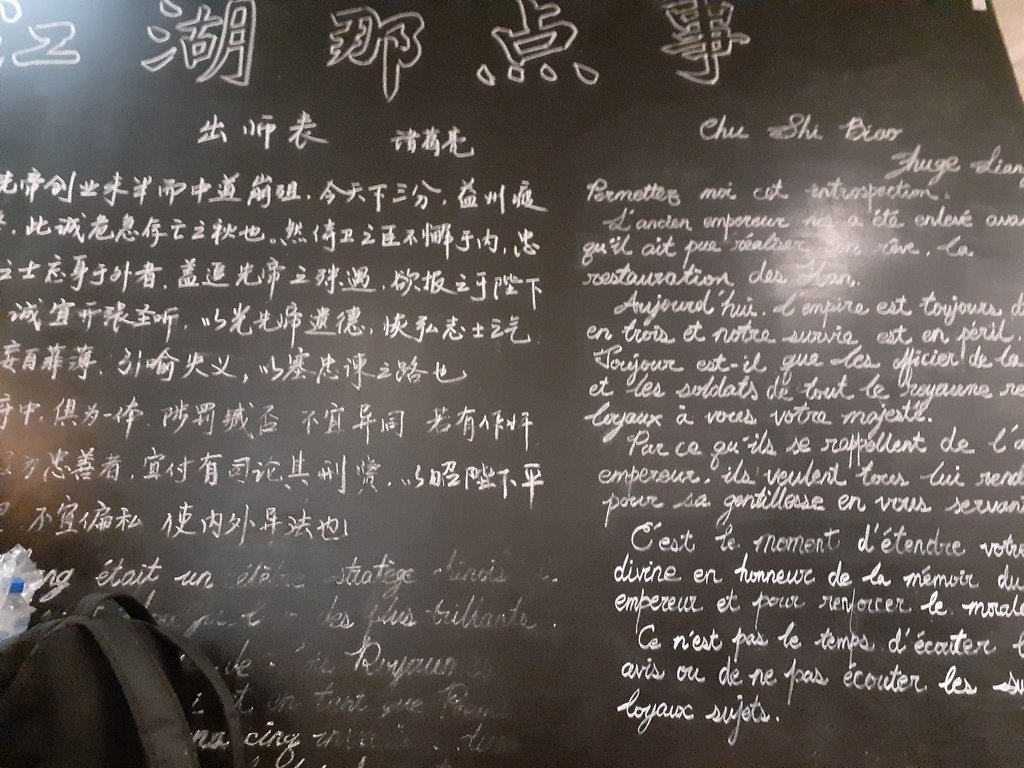 江湖那点事
出师表
诸葛亮
先帝创业未半而中道崩殂，今天下三分，益州疲
，此诚危急存亡之秋也。然侍卫之臣不懈于内，忠
之士忘身于外者，盖追先帝之殊遇，欲报之于陛下
诚宜开张圣听，以光先帝遗德，恢弘志士之气
妄自菲薄，引喻失义，以塞忠谏之路也
府中，俱为一体 陟罚臧否 不宜异同 若有作奸
为忠善者，宜付有司论其刑赏，以昭陛下平
不宜偏私 使内外异法也
était un stratège
des plus brillants
de Royaumes
en tant que
cinq
Chu Shi Biao
Zhuge Liang
Permettez moi cet introspection.
L'ancien empereur nous a été enlevé avan
qu'il ait pue réaliser son rêve, la
restauration des Han.
Aujourd'hui, l'empire est toujours d
en trois et notre survie est en péril.
Toujour est-il que les officier de la
et les soldats de tout le royaume re
loyaux à vous votre majesté.
Par ce qu'ils se rappellent de l'a
empereur, ils veulent tous lui rend
pour sa gentillesse en vous servant
C'est le moment d'étendre votre
divine en honneur de la mémoir du
empereur et pour renforcer le morale
Ce n'est pas le temps d'écouter l
avis ou de ne pas écouter les su
loyaux sujets.